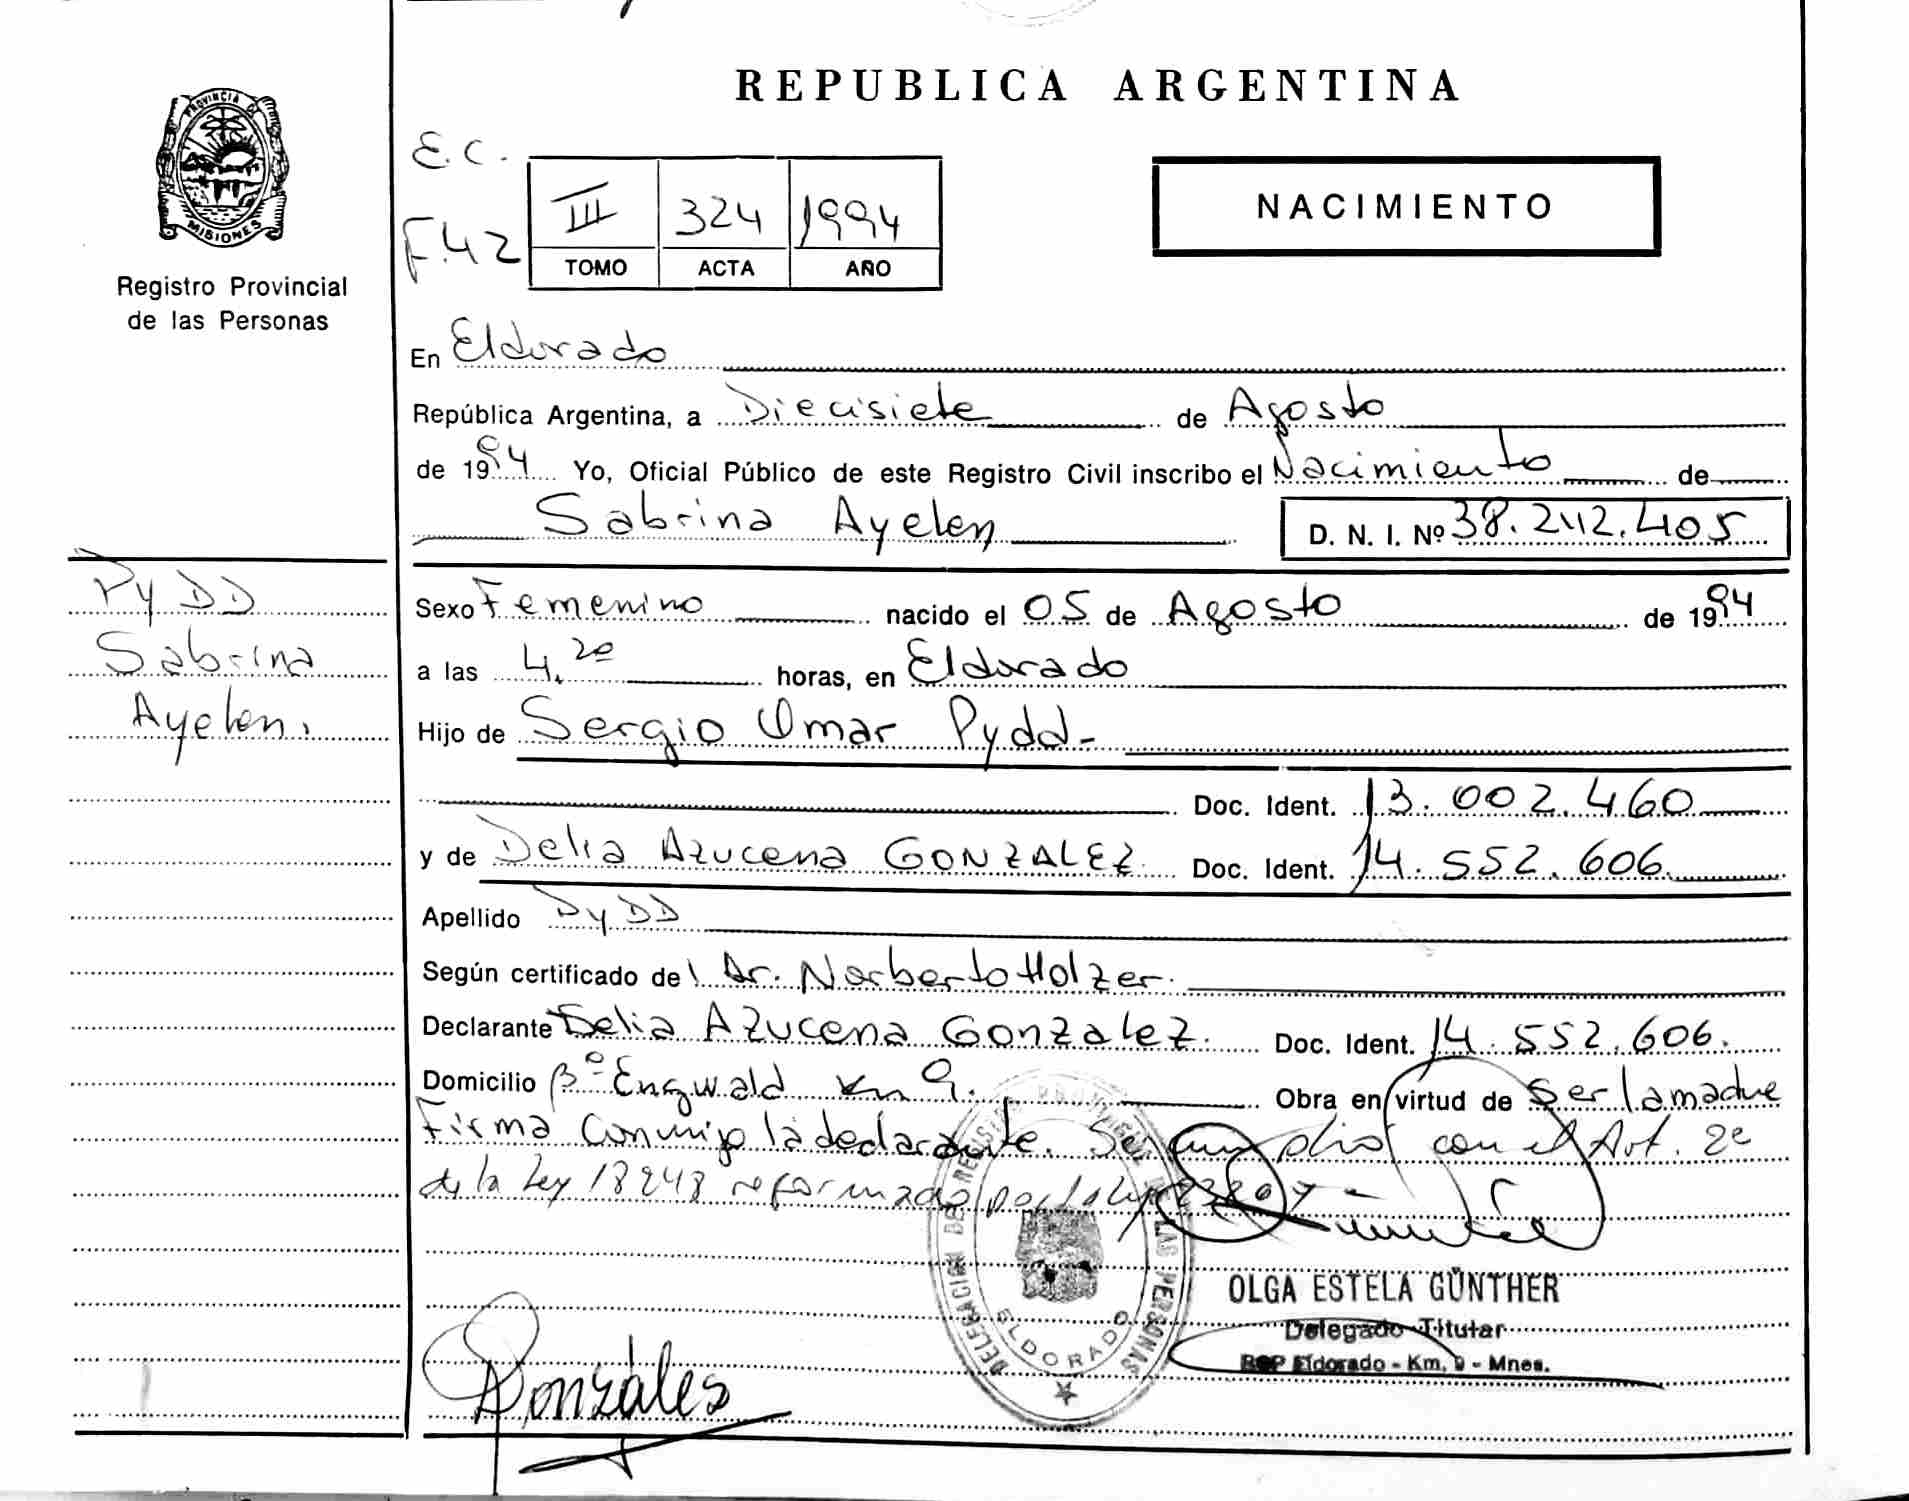 REPUBLICA ARGENTINA
PROVINCIA DE
MISIONES
Registro Provincial
de las Personas
E.C.
F.42
III 324 1994
TOMO ACTA AÑO
NACIMIENTO
En Eldorado
República Argentina, a Diecisiete de Agosto
de 1994 Yo, Oficial Público de este Registro Civil inscribo el Nacimiento de
Sabrina Ayelen D. N. I. Nº 38.242.405
PyDD
Sabrina
Ayelen.
Sexo Femenino nacido el 05 de Agosto de 1994
a las 4.20 horas, en Eldorado
Hijo de Sergio Omar Pydd-
Doc. Ident. 13.002.460
y de Delia Azucena GONZALEZ Doc. Ident. 14.552.606.
Apellido PyDD
Según certificado del Dr. Norberto Holzer.
Declarante Delia Azucena Gonzalez. Doc. Ident. 14.552.606.
Domicilio Bº Engwald km 9. Obra en virtud de ser la madre
Firma conmigo la declarante. Se cumplió con el Art. 2º
de la Ley 18248 reformado por la ley
DELEGACION DEL REGISTRO PROVINCIAL DE LAS PERSONAS
ELDORADO
OLGA ESTELA GÜNTHER
Delegado Titular
RCP Eldorado - Km. 9 - Mnes.
Gonzáles